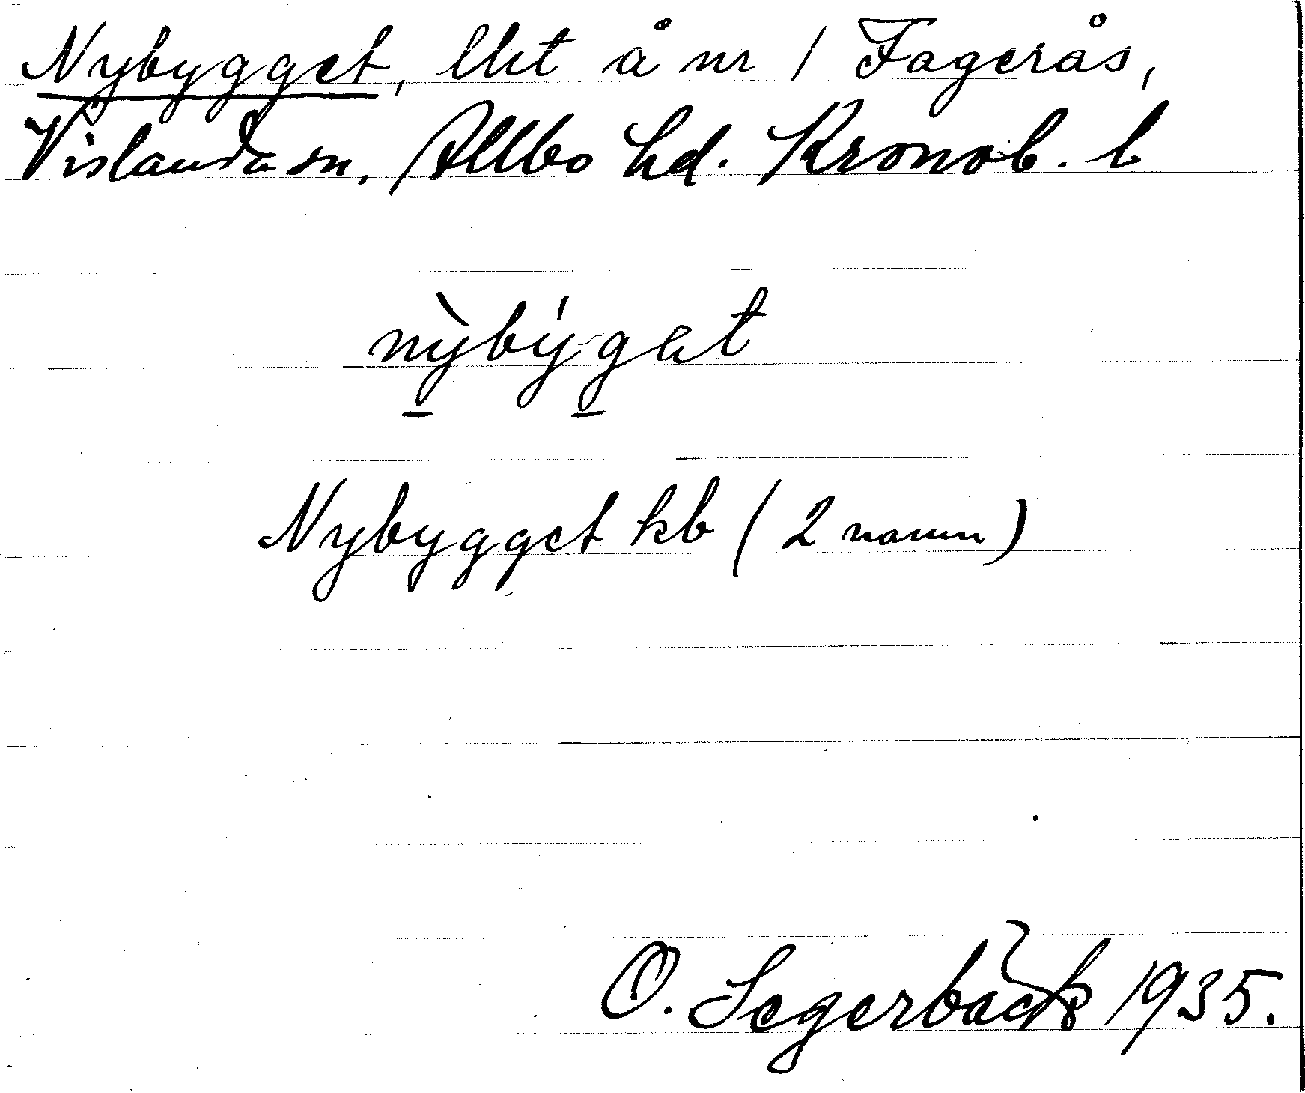 Nybygget, lht å nr 1 Fagerås,
Vislanda sn, Allbo hd. Kronob. l
nỳbýgat
Nybygget kb (2 namn)
O. Segerbäck 1935.